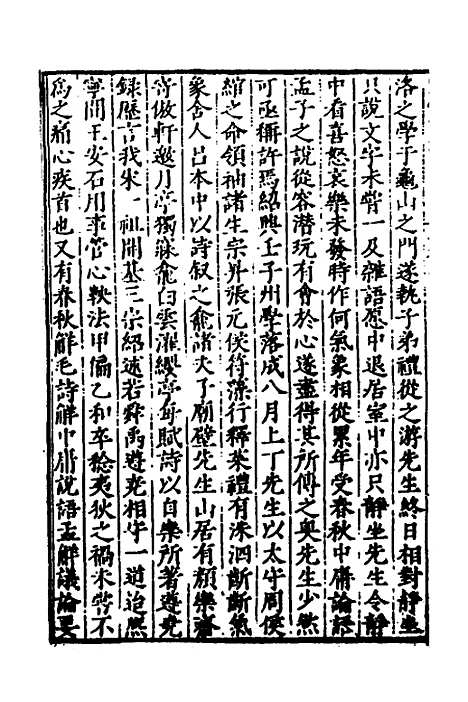 洛之學于龜山之門遂執子弟禮從之游先生終日相對靜坐
只說文字未嘗一及雜語愿中退居室中亦只靜坐先生令靜
中看喜怒哀樂未發時作何氣象相從累年受春秋中庸論語
孟子之說從容潛玩有會於心遂盡得其所傳之奧先生少然
可亟稱許焉紹興壬子州學落成八月上丁先生以太守周侯
綰之命領袖諸生宗外張元侯符藻行釋菜禮有洙泗斷斷氣
象舍人呂本中以詩叙之龕諸夫子廟壁先生山居有顏樂齋
寄傲軒邀月亭獨寐龕白雲濯纓亭每賦詩以自樂所著遵堯
錄歷言我宋一祖開基三宗紹述若舜禹遵堯相守一道治熙
寧間王安石用事管心鞅法甲倡乙和卒稔夷狄之禍未嘗不
為之痛心疾首也又有春秋解毛詩解中庸說語孟解議論要